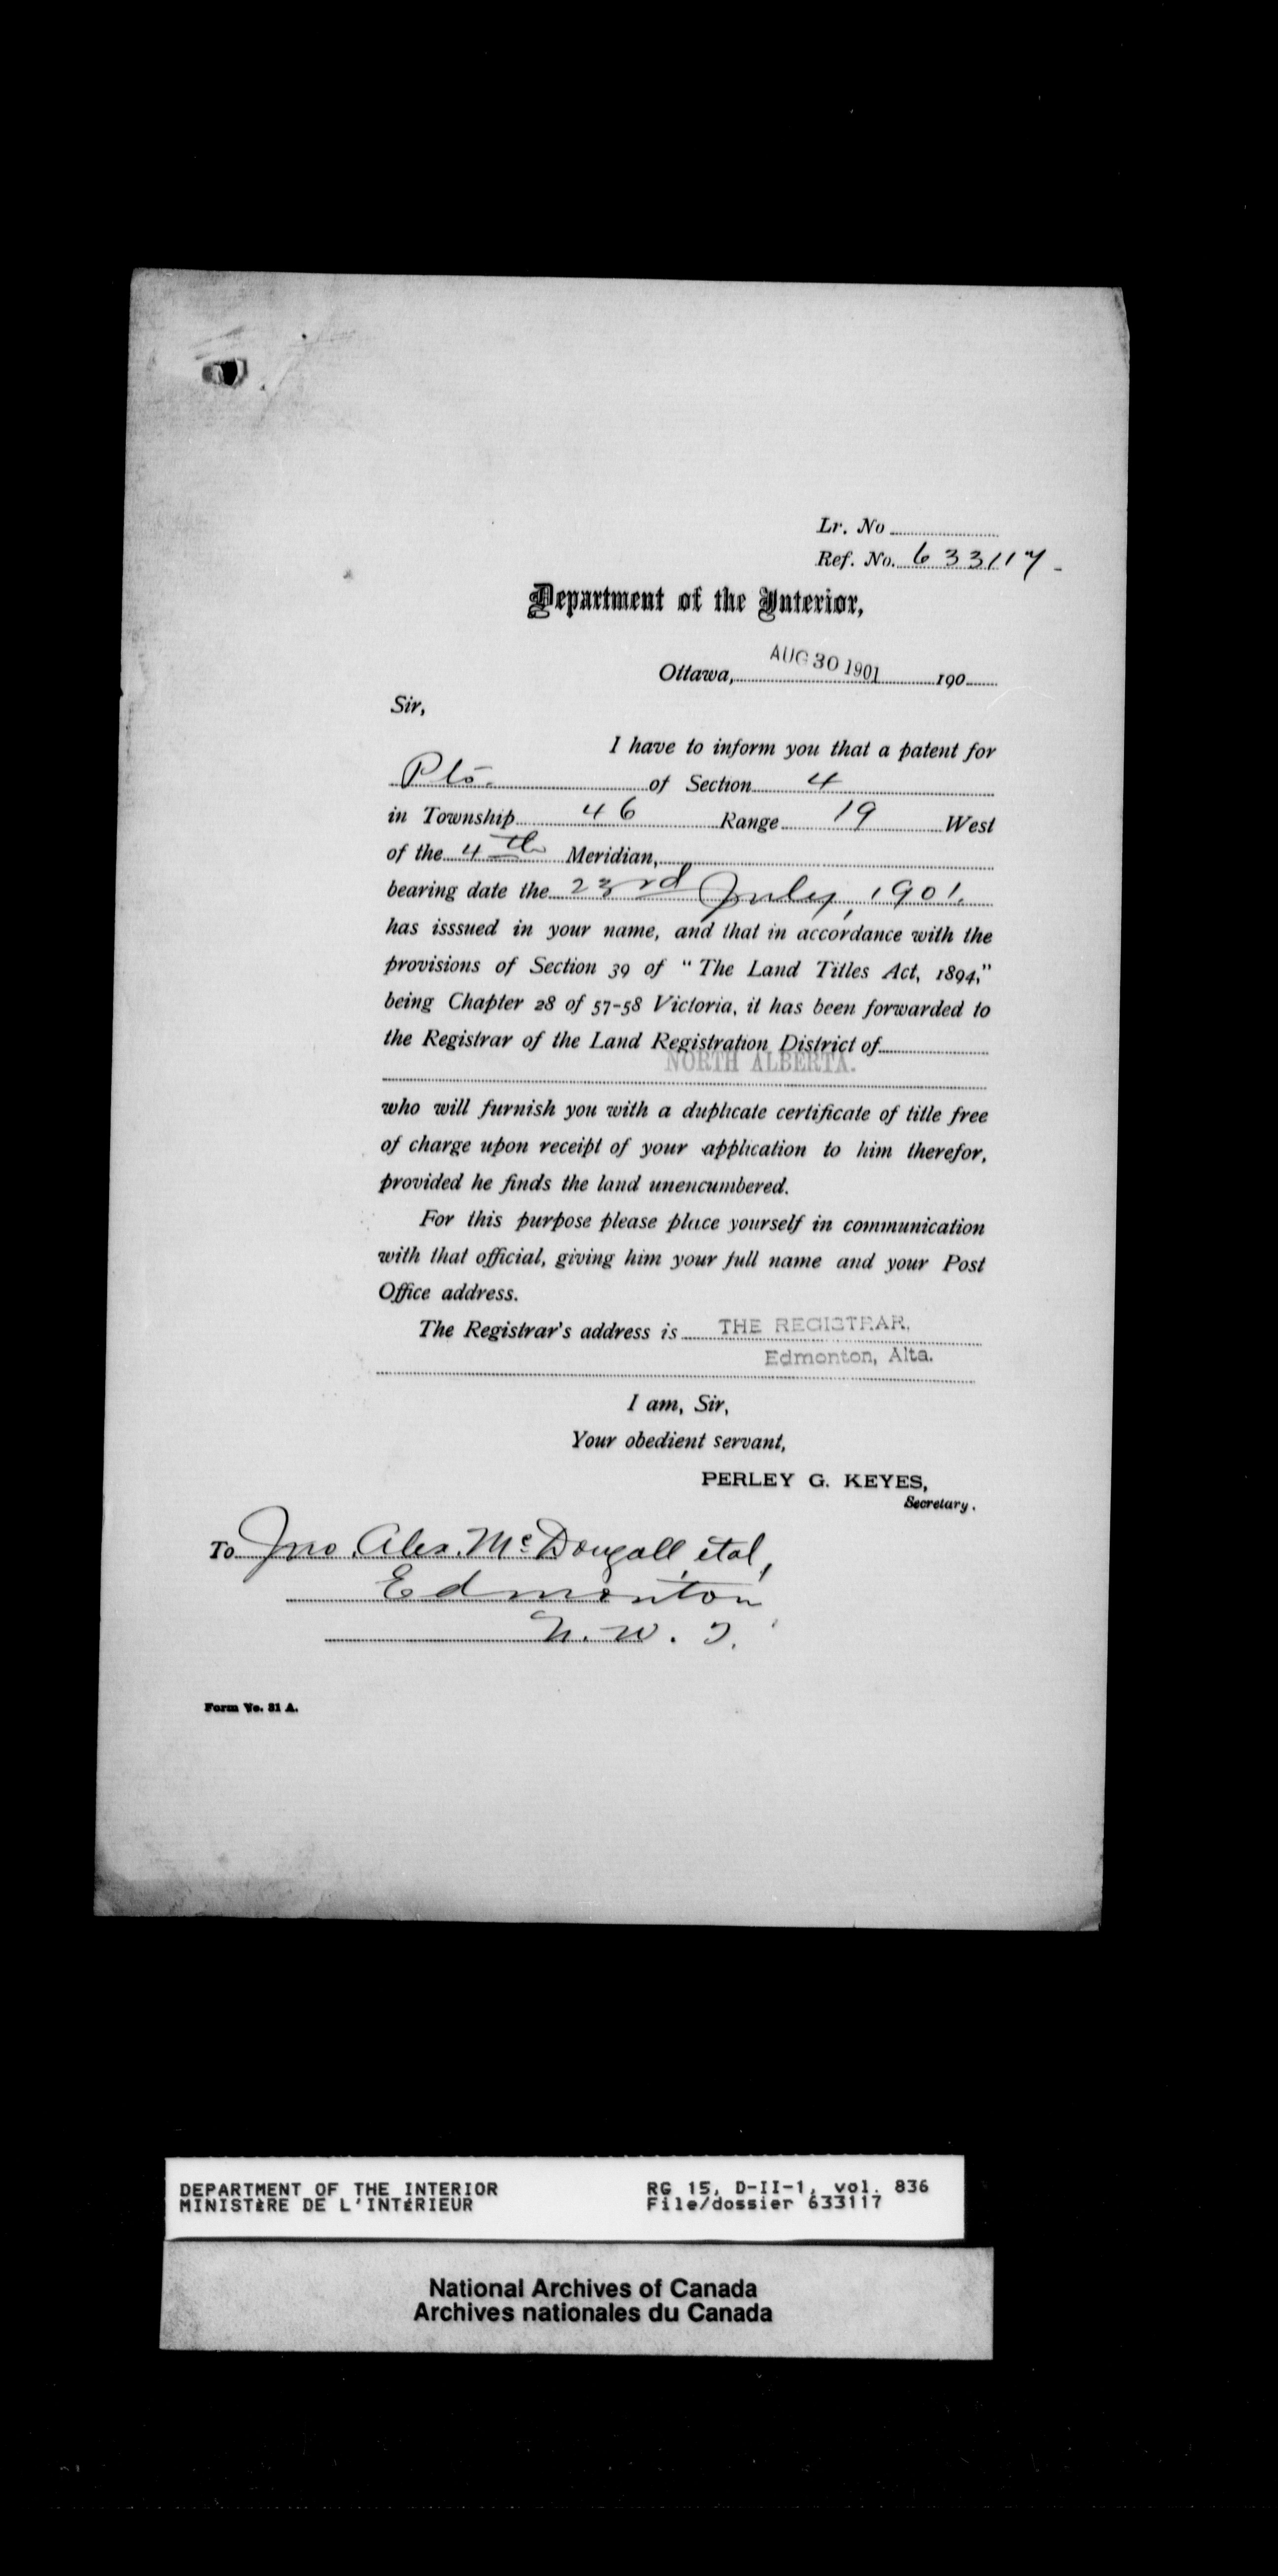 Lr. No
Ref. No. 633117-
Department of the Interior,
Ottawa, AUG 30 1901 190
Sir,
I have to inform you that a patent for
Pts. of Section 4
in Township 46 Range 19 West
of the 4th Meridian,
bearing date the 23rd July, 1901.
has isssued in your name, and that in accordance with the
provisions of Section 39 of "The Land Titles Act, 1894,"
being Chapter 28 of 57-58 Victoria, it has been forwarded to
the Registrar of the Land Registration District of
NORTH ALBERTA.
who will furnish you with a duplicate certificate of title free
of charge upon receipt of your application to him therefor,
provided he finds the land unencumbered.
For this purpose please place yourself in communication
with that official, giving him your full name and your Post
Office address.
The Registrar's address is THE REGISTRAR,
Edmonton, Alta.
I am, Sir,
Your obedient servant,
PERLEY G. KEYES,
Secretary.
To Jno. Alex. McDougall, et al,
Edmonton
N. W. T.
Form No. 31 A.
DEPARTMENT OF THE INTERIOR RG 15, D-II-1, vol. 836
MINISTÈRE DE L'INTÉRIEUR File/dossier 633117
National Archives of Canada
Archives nationales du Canada